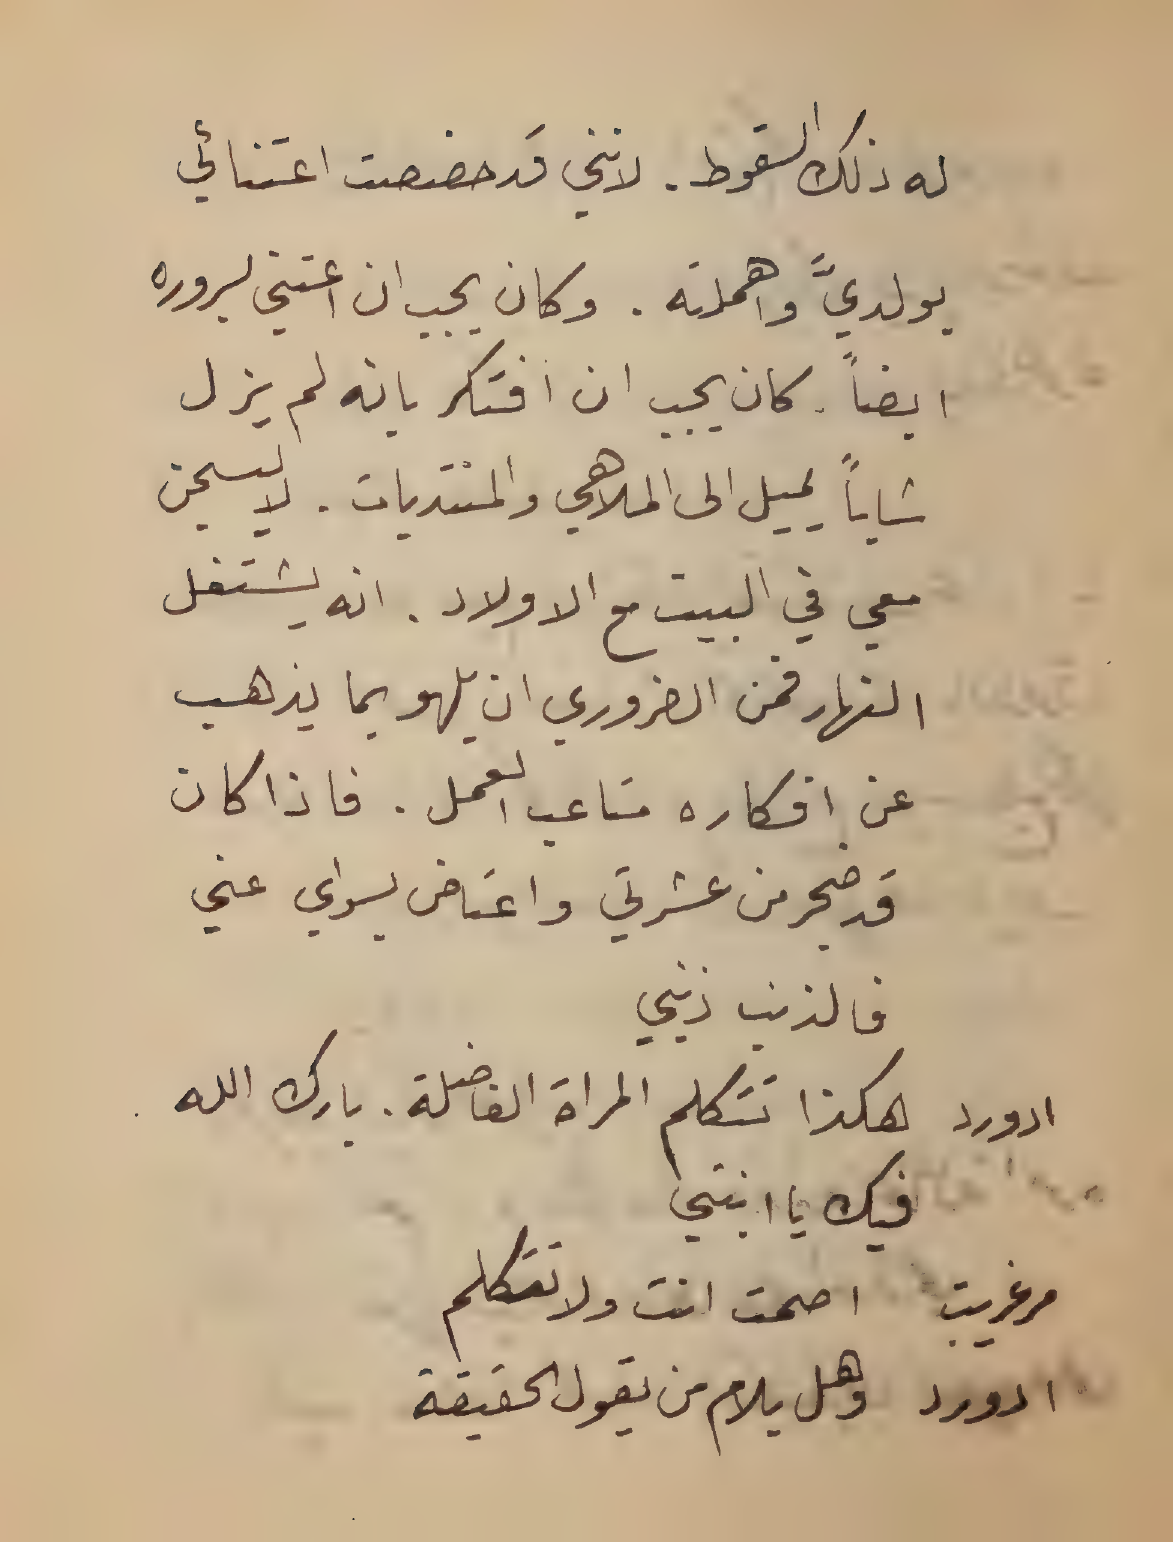 له ذلك السقوط. لانني قد خصصت اعتنائي
بولديَّ واهملته. وكان يجب ان اعتني بسروره
ايضاً. كان يجب ان افتكر بانه لم يزل
شاباً يميل الى الملاهي والمنتديات. لا ليسجن
معي في البيت مع الاولاد. انه يشتغل
النهار فمن الضروري ان يلهو بما يذهب
عن افكاره متاعب العمل. فاذا كان
قد ضجر من عشرتي واعتاض بسواي عني
فالذنب ذنبي
ادورد هكذا تتكلم المراة الفاضلة. بارك الله
فيك يا ابنتي
مرغريت اصمت انت ولا تتكلم
ادورد وهل يلام من يقول الحقيقة